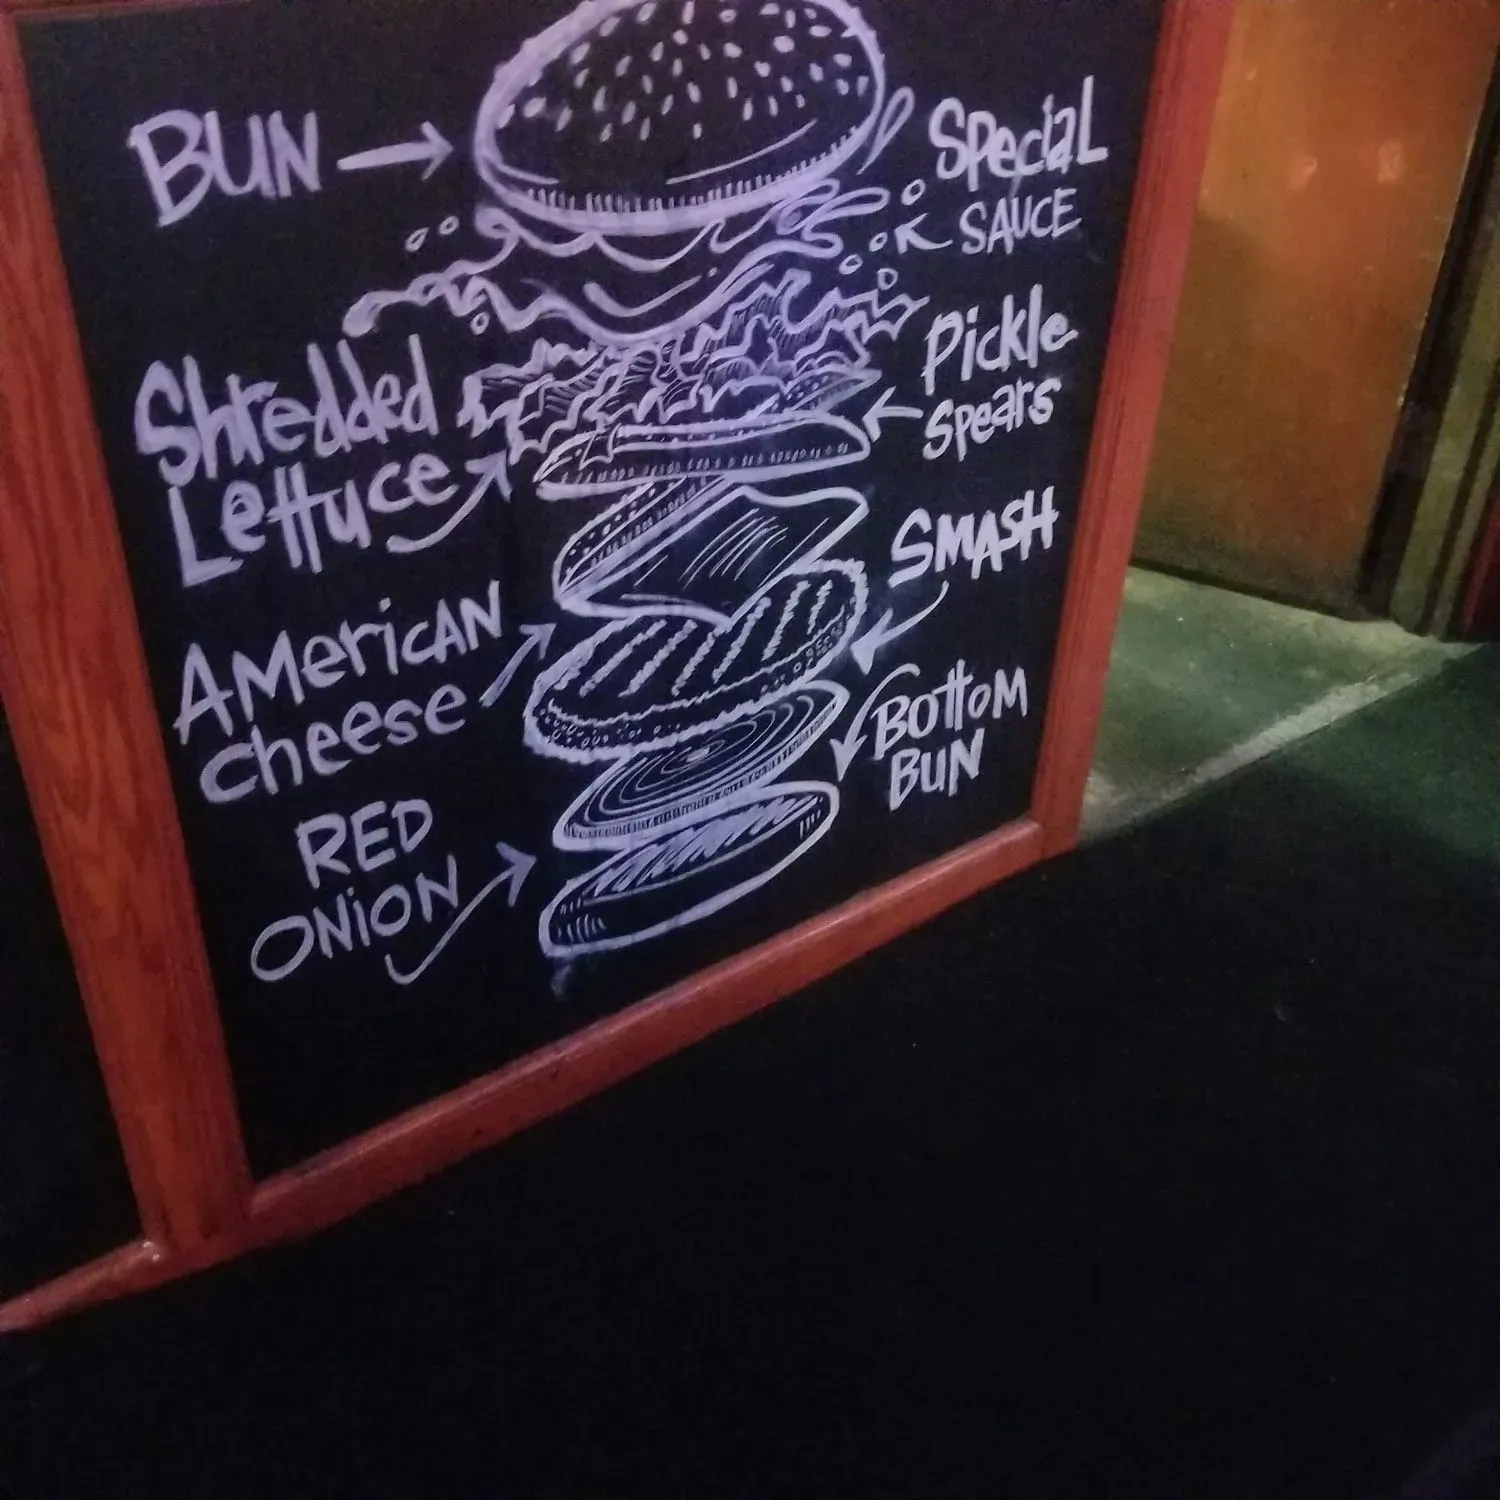 BUN
Special
SAUCE
Shredded
Lettuce
Pickle
Spears
AMericAN
cheese
SMASH
RED
ONiON
BottoM
BUN